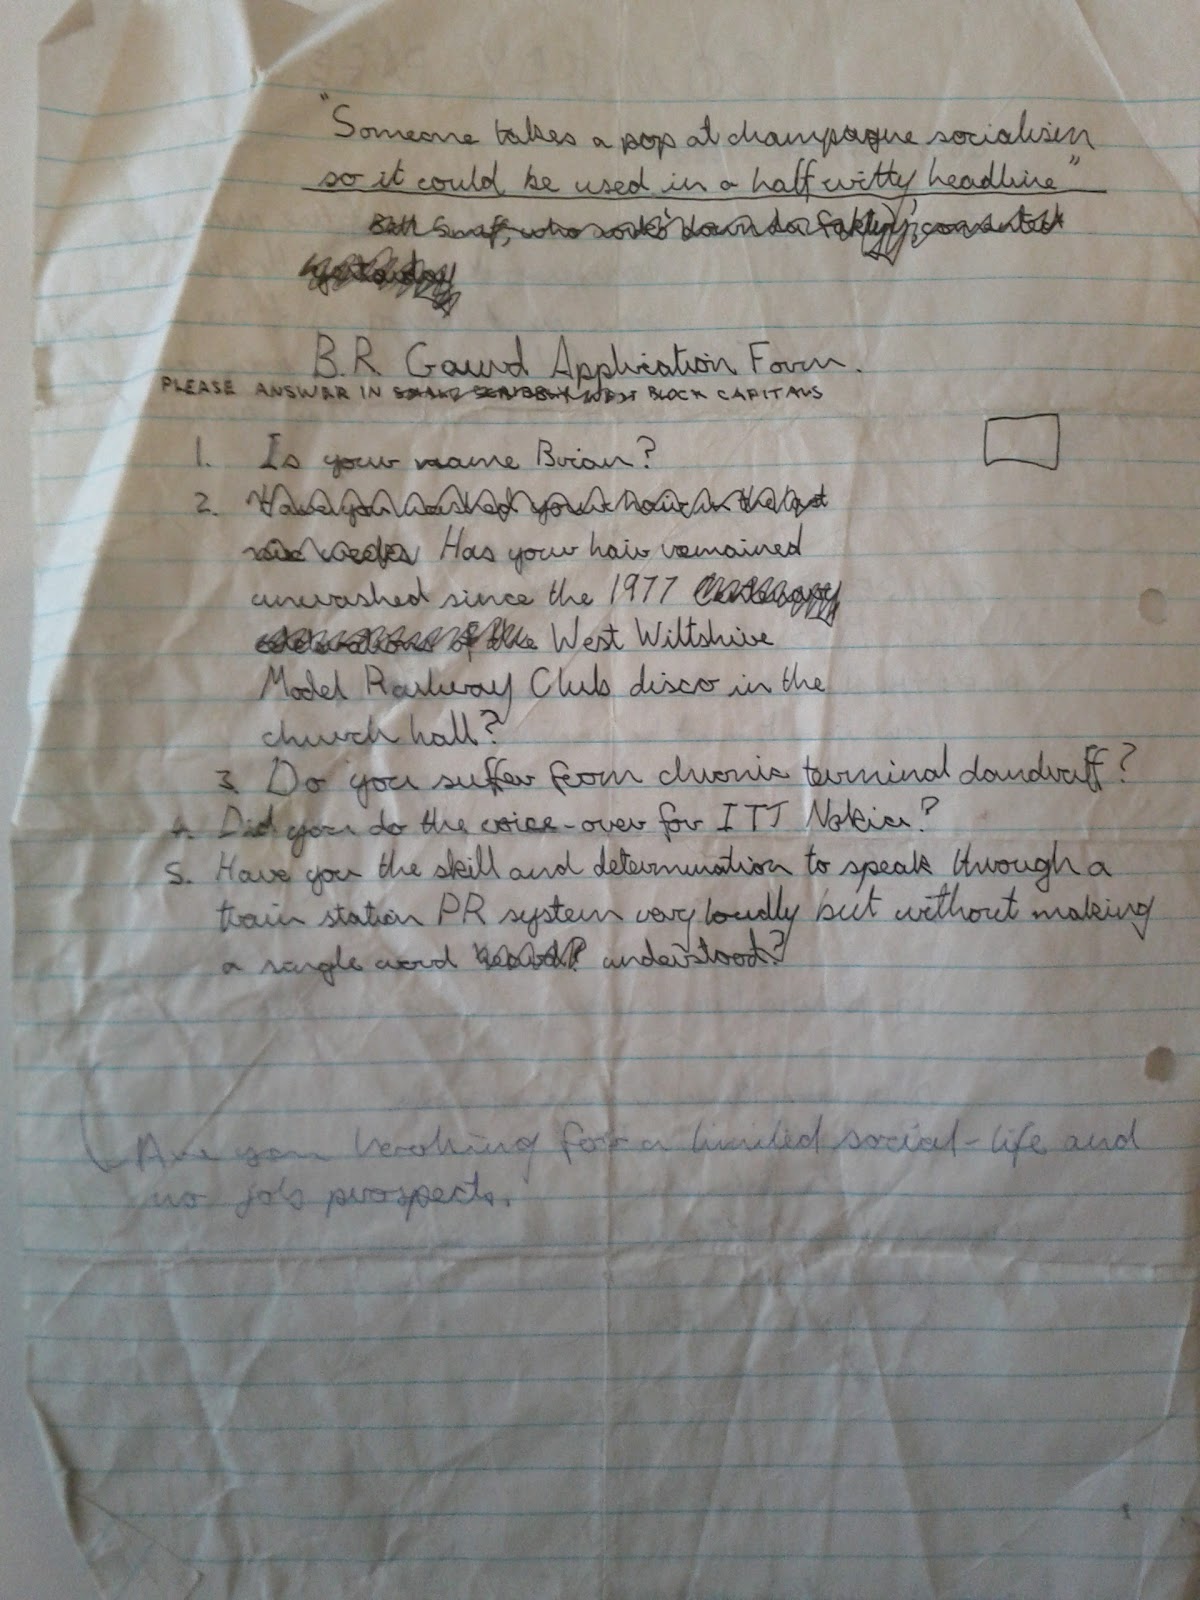 "Someone takes a pop at champagne socialism
so it could be used in a half witty headline"
B.R Gaurd Application Form.
PLEASE ANSWAR IN BLOCK CAPITALS
1. Is your name Brian?
2. Have you washed your hair in the last
weeks Has your hair remained
unwashed since the 1977 Centenary
celebrations of the West Wiltshire
Model Railway Club disco in the
church hall?
3. Do you suffer from chronic terminal dandruff?
4. Did you do the voice-over for ITT Nokia?
5. Have you the skill and determination to speak through a
train station PR system very loudly but without making
a single word heard? understood?
Are you looking for a limited social-life and
no job prospects.